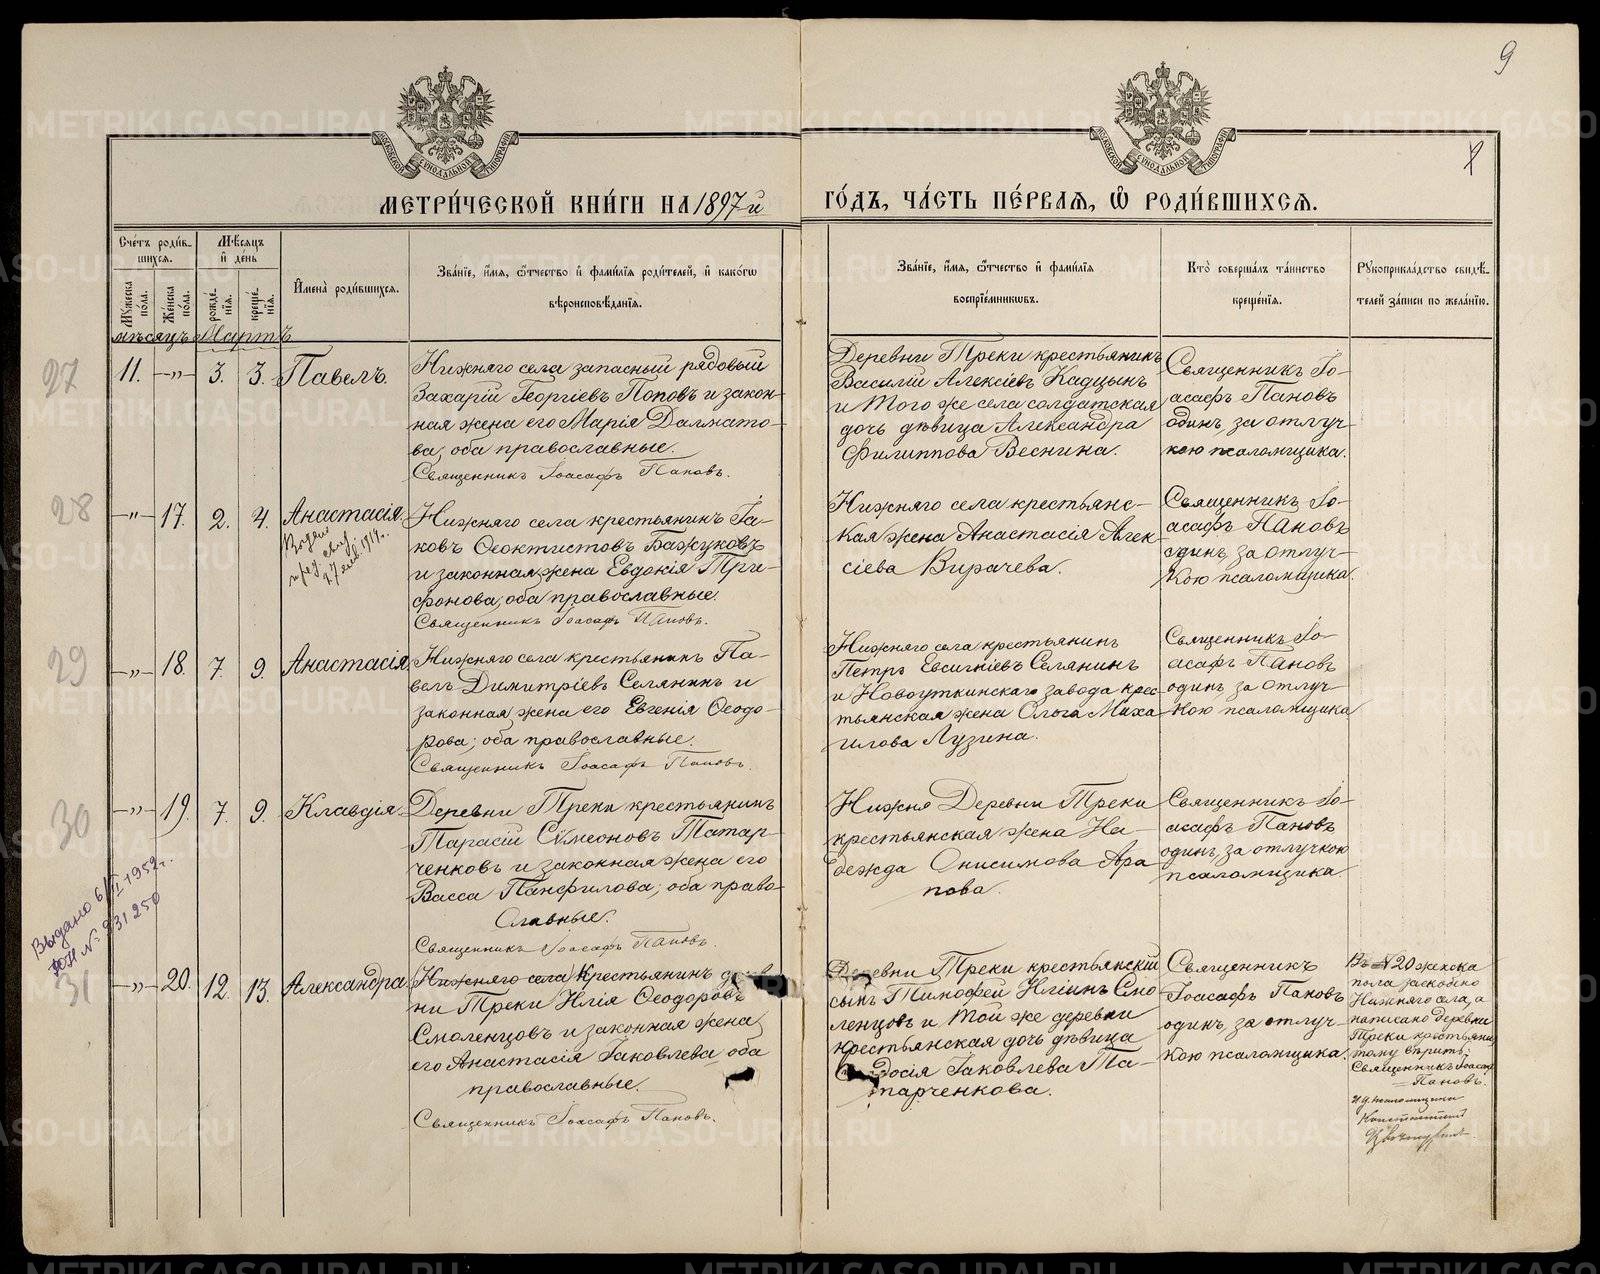 9
МЕТРИ́ЧЕСКОЙ КНИ́ГИ НА 1897й
ГО́ДЪ, ЧА́СТЬ ПЕ́РВАЯ, Ѡ РОДИ́ВШИХСЯ.
МОСКОВСКОЙ СѴНОДАЛЬНОЙ ТИПОГРАФІИ
МОСКОВСКОЙ СѴНОДАЛЬНОЙ ТИПОГРАФІИ
Сче́тъ роди́в-
шихся.
Му́жеска по́ла.
Же́нска по́ла.
Мѣ́сяцъ
и҆ де́нь
рожде́-
нїя.
креще́-
нїя.
И҆мена̀ роди́вшихся.
Зва́нїе, и҆́мя, ѻ҆́тчество и҆ фами́лїя роди́телей, и҆ како́гѡ
вѣроисповѣ́данїя.
Зва́нїе, и҆́мя, ѻ҆́тчество и҆ фами́лїя
воспрїе́мниковъ.
Кто̀ соверша́лъ та́инство
креще́нїя.
Рꙋкоприкла́дство свидѣ́-
телей за́писи по жела́нїю.
мѣсяцъ Мартъ
27
11. —„— 3. 3. Павелъ.
Нижняго села запасный рядовый
Захарій Георгіевъ Поповъ и закон-
ная жена его Марія Далмато-
ва, оба православные.
Священникъ Іоасафъ Пановъ.
Деревни Треки крестьянинъ
Василій Алексіевъ Кадцынъ
и того же села солдатская
дочь дѣвица Александра
Филиппова Веснина.
Священникъ Іо-
асафъ Пановъ
одинъ, за отлуч-
кою псаломщика.
28
—„— 17. 2. 4. Анастасія.
1919.
Нижняго села крестьянинъ Іа-
ковъ Ѳеоктистовъ Бажуковъ
и законная жена Евдокія Три-
фонова, оба православные.
Священникъ Іоасафъ Пановъ.
Нижняго села крестьянс-
кая жена Анастасія Алек-
сіева Вирачева.
Священникъ Іо-
асафъ Пановъ
одинъ, за отлуч-
кою псаломщика.
29
—„— 18. 7. 9. Анастасія.
Нижняго села крестьянинъ Па-
велъ Димитріевъ Селянинъ и
законная жена его Евгенія Ѳеодо-
рова; оба православные.
Священникъ Іоасафъ Пановъ.
Нижняго села крестьянинъ
Петръ Евсигніевъ Селянинъ
и Новоуткинскаго завода крес-
тьянская жена Ольга Миха-
илова Лузина.
Священникъ Іо-
асафъ Пановъ
одинъ за отлуч-
кою псаломщика
30
—„— 19. 7. 9. Клавдія.
Деревни Треки крестьянинъ
Тарасій Сѵмеоновъ Татар-
ченковъ и законная жена его
Васса Панфилова; оба право-
славные.
Священникъ Іоасафъ Пановъ.
Нижня Деревни Треки
крестьянская жена На-
дежда Онисимова Ара-
пова.
Священникъ Іо-
асафъ Пановъ
одинъ, за отлучкою
псаломщика
Выдано 6/I 1952г.
ЮН № 931250
31
—„— 20. 12. 13. Александра
(Нижняго села) Крестьянинъ
ни Треки Илія Ѳеодоровъ
Смоленцовъ и законная жена
его Анастасія Іаковлева, оба
православные.
Священникъ Іоасафъ Пановъ.
Деревни Треки крестьянскій
сынъ Тимофей Иліинъ Смо-
ленцовъ и той же деревни
крестьянская дочь дѣвица
Іаковлева Та-
тарченкова.
Священникъ
Іоасафъ Пановъ
одинъ, за отлуч-
кою псаломщика.
Въ 20 женска
пола заскоблено
Нижняго села, а
написано деревни
Треки крестьянинъ
тому вѣрить.
Священникъ Іоасафъ
Пановъ.
И. д. псаломщика
Константинъ